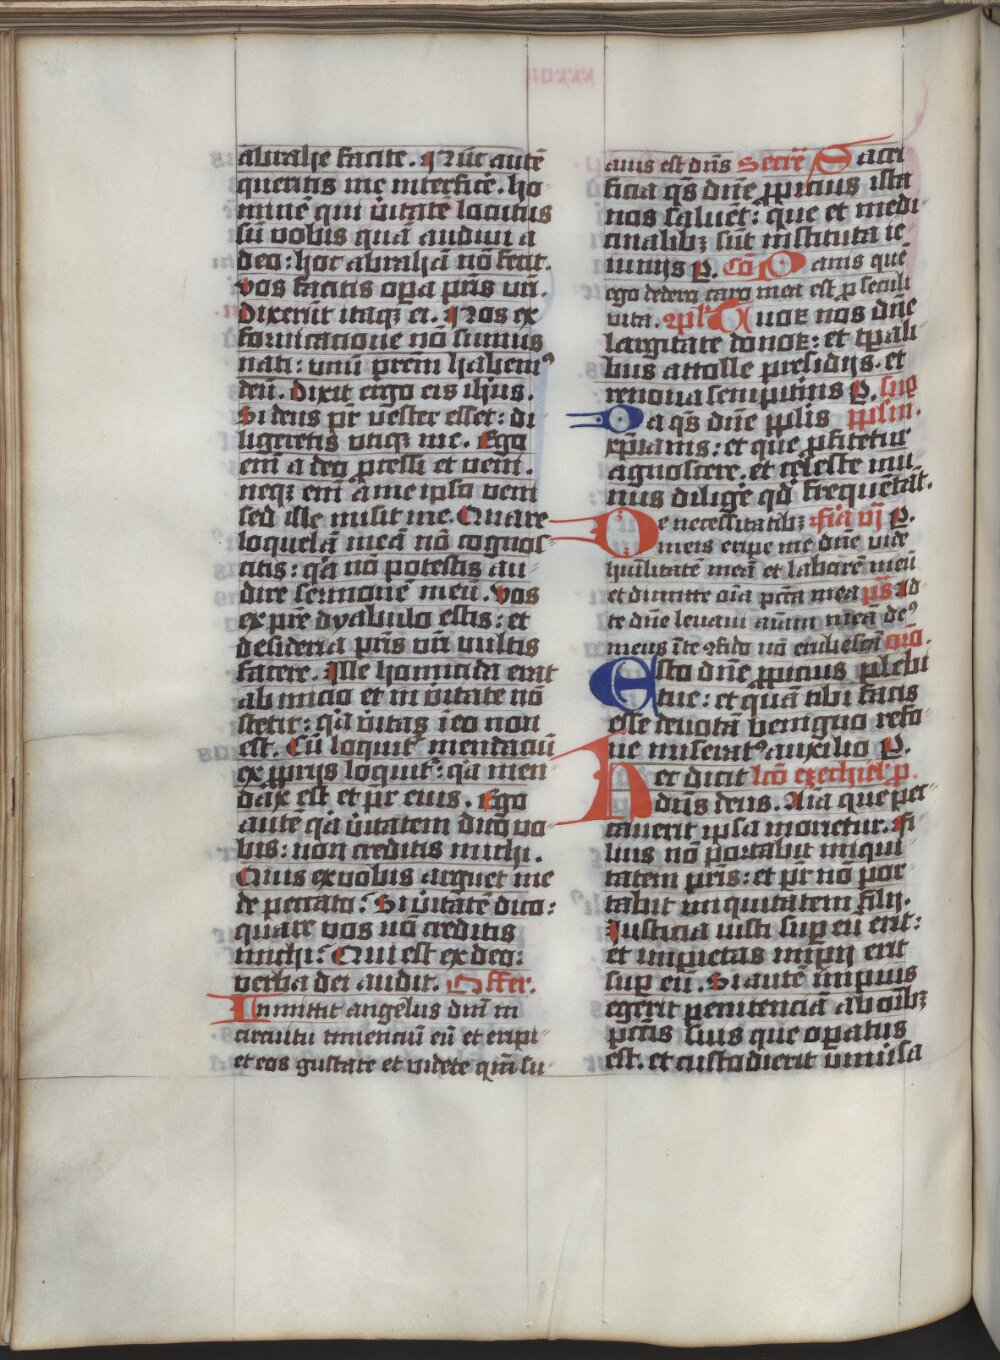 abrahe facite. Nūc autē
queritis me īterficē. ho
minē qui v̄itatē locutus
sū vobis quā audiui a
deo: hoc abrahā nō fecit.
Vos facitis opa pr̄is vri.
Dixerūt itaqꝫ ei. Nos ex
fornicatione nō sumus
nati: vnū prēm habemꝰ
deū. Dixit ergo eis ihūs.
Si deus pr̄ vester esset: di
ligeretis vtiqꝫ me. Ego
em̄ a deo processi et veni.
neqꝫ em̄ a me ipso veni
sed ille misit me. Quare
loquelā meā nō cognos
citis: q̄a nō potestis au
dire sermonē meū. Vos
ex pr̄e dyabulo estis: et
desideria pr̄is vr̄i vultis
facere. Ille homicida erat
ab inicio et in v̄itate nō
stetit: q̄a v̄itas ī eo non
est. Cū loquit̄ mendaciū
ex ꝓprijs loquit̄: q̄a men
dax est et pr̄ eius. Ego
autē q̄a v̄itatem dico vo
bis: non creditis michi.
Quis ex vobis arguet me
de peccato? Si v̄itatē dico:
quare vos nō creditis
michi? Qui est ex deo:
verba dei audit. Offer.
Inmittit angelus dn̄i in
circuitu timenciū eū et eripi
et eos gustate et videte qm̄ su
auis est dn̄s Secrē Sacri
ficia qs dn̄e ꝓpicius ista
nos saluēt: que et medi
cinalibꝫ sūt instituta ie
iunijs P. Cō Panis quē
ego dedero caro mea est p̄ seculi
vita. ꝯpl̄ Quos nos dn̄e
largitate donos: et tp̄ali
bus attolle presidijs. et
renoua sempit̄nis P. sup̄
Da qs dn̄e pp̄lis pp̄lm̄.
xp̄ianis: et que ꝓfitētur
agnoscere. et celeste mu
nus diligē qd̄ frequētāt.
De necessitatibꝫ fīa vj P.
meis eripe me dn̄e vide
hūilitatē meā et laborē meū
et dimitte oīa pctā mea ps̄ Ad
te dn̄e leuaui aīam meā deꝰ
meus ī te ꝯfido nō erubescā oro.
Esto dn̄e ꝓpicius plebi
tue: et quā tibi facis
esse deuotā benigno refo
ue miseratꝰ auxilio P.
Hec dicit lcō ezechiel' p̄.
dn̄s deus. Aīa que pec
cauerit ipsa morietur. Fi
lius nō portabit iniqui
tatem pr̄is: et pr̄ nō por
tabit iniquitatem filij.
Iusticia iusti sup eū erit:
et impietas impij erit
sup eū. Si autē impius
egerit penitenciā ab oībꝫ
pctīs suis que opatus
est. et custodierit vniūsa